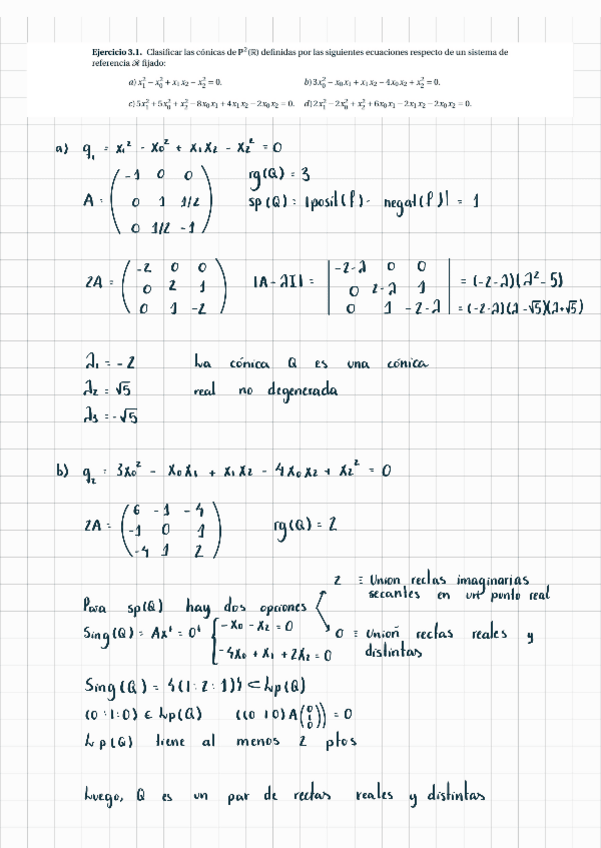 Ejercicio 3.1. Clasificar las cónicas de P²(ℝ) definidas por las siguientes ecuaciones respecto de un sistema de
referencia ℛ fijado:
a) x₁² − x₀² + x₁x₂ − x₂² = 0. b) 3x₀² − x₀x₁ + x₁x₂ − 4x₀x₂ + x₂² = 0.
c) 5x₁² + 5x₀² + x₂² − 8x₀x₁ + 4x₁x₂ − 2x₀x₂ = 0. d) 2x₁² − 2x₀² + x₂² + 6x₀x₁ − 2x₁x₂ − 2x₀x₂ = 0.
a) q₁ = x₁² - x₀² + x₁x₂ - x₂² = 0
A = ( -1 0 0 rg(Q) = 3
0 1 1/2 sp(Q) = |posit(f) - negat(f)| = 1
0 1/2 -1 )
2A = ( -2 0 0 |A - λI| = | -2-λ 0 0 | = (-2-λ)(λ² - 5)
0 2 1 0 2-λ 1
0 1 -2 ) 0 1 -2-λ | = (-2-λ)(λ-√5)(λ+√5)
λ₁ = -2 La cónica Q es una cónica
λ₂ = √5 real no degenerada
λ₃ = -√5
b) q₂ : 3x₀² - x₀x₁ + x₁x₂ - 4x₀x₂ + x₂² = 0
2A = ( 6 -1 -4
-1 0 1 rg(Q) = 2
-4 1 2 )
2 ≡ Union rectas imaginarias
secantes en un punto real
Para sp(Q) hay dos opciones
0 ≡ Union rectas reales y
distintas
Sing(Q) = Axᵗ = 0ᵗ { -x₀ - x₂ = 0
-4x₀ + x₁ + 2x₂ = 0
Sing(Q) = {(1:2:1)} ⊂ Lp(Q)
(0:1:0) ∈ Lp(Q) ((0 1 0) A (0 1 0)) = 0
Lp(Q) tiene al menos 2 ptos
Luego, Q es un par de rectas reales y distintas